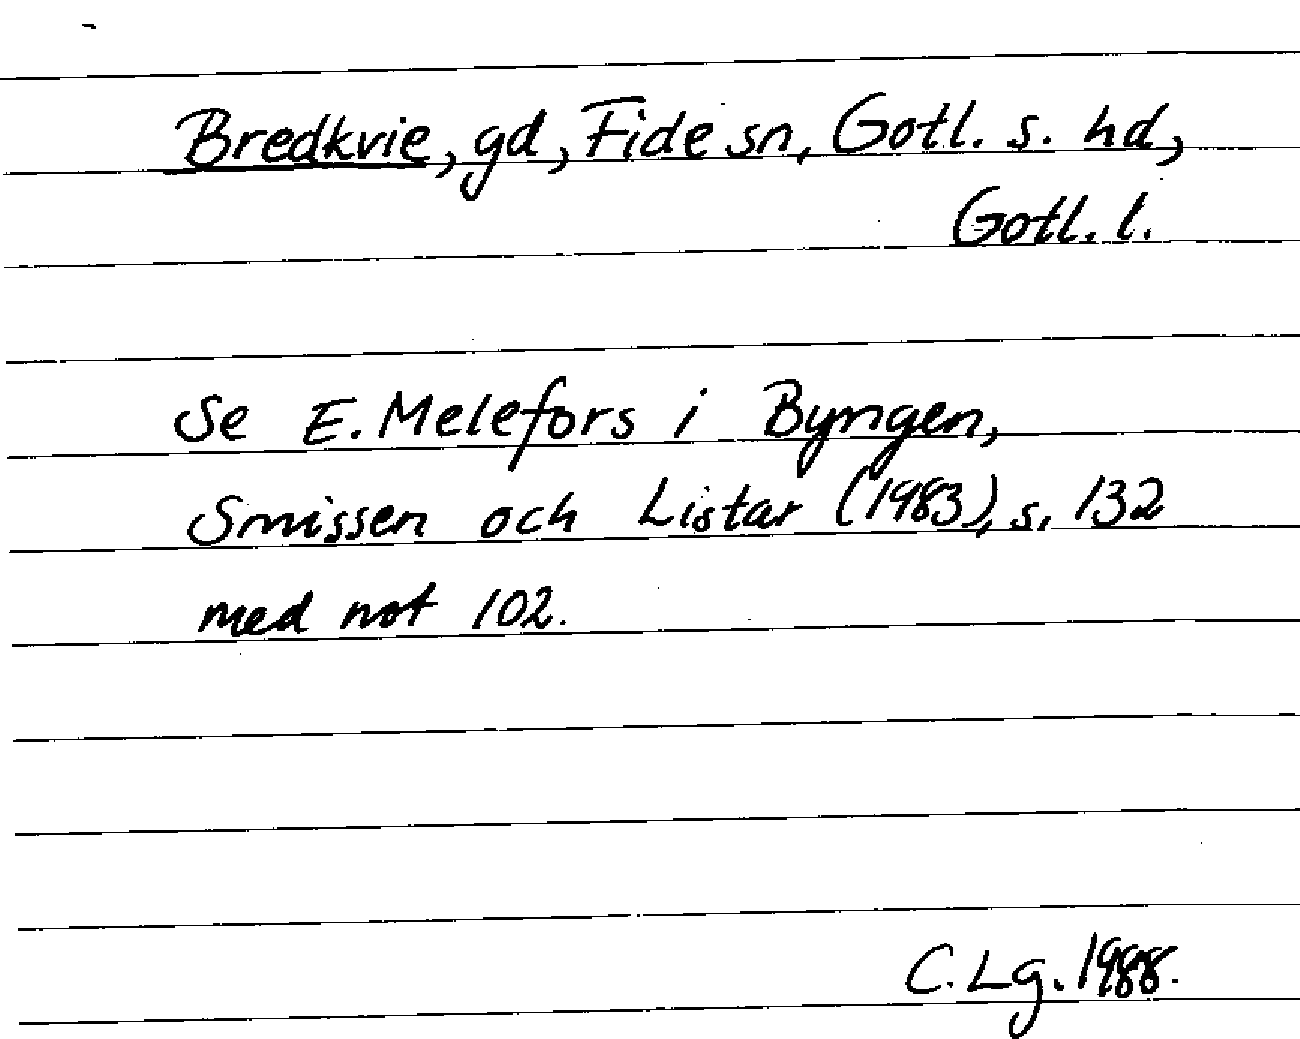 Bredkvie, gd, Fide sn, Gotl. s. hd,
Gotl. l.
Se E. Melefors i Byngen,
Smissen och Listar (1983), s. 132
med not 102.
C. Lg. 1988.